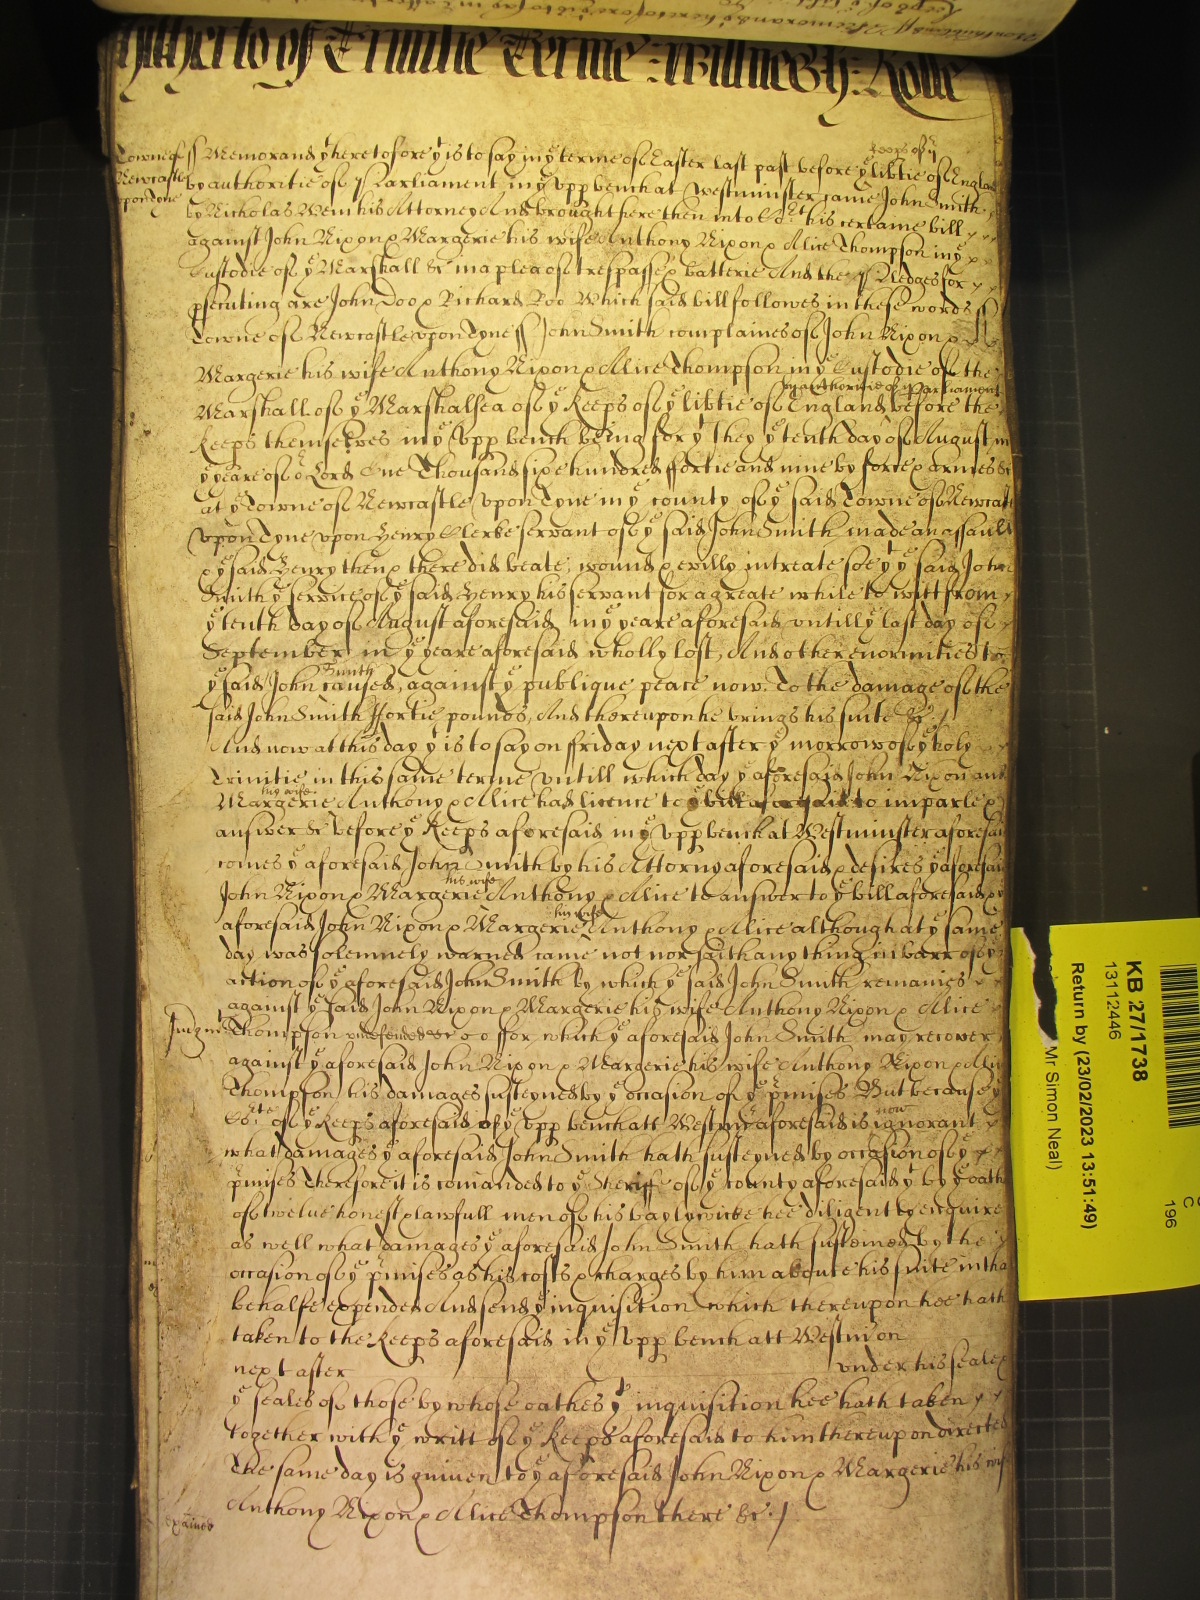 hitherto of Trinitie Terme : Willnes h : Rolle
Towne of Newcastle upon Tyne
ss Memorand yt heretofore yt is to say in ye terme of Easter last past before ye keeps of ye libtie of England
by authoritie of Parliament in ye upp bench at Westminster came John Smith
by Nicholas Wem his Attorney And brought here then into Co:rt his certaine bill
against John Nixon & Margerie his wife Anthony Nixon & Alice Thompson in ye
Custodie of ye Marshall &c in a plea of trespasse & batterie And the Pledges for
psecuting are John Doo & Richard Roo Which said bill followes in these words ss
Towne of Newcastle upon Tyne ss John Smith complaines of John Nixon &
Margerie his wife Anthony Nixon & Alice Thompson in ye Custodie of the
Marshall of ye Marshalsea of ye Keeps of ye libtie of England by authoritie of Parliament before the
Keeps themselves in ye upp bench being for yt they ye tenth day of August in
ye yeare of or Lord One Thousand six hundred ffortie and nine by force & armes &c
at ye Towne of Newcastle upon Tyne in ye county of ye said Towne of Newcastle
upon Tyne upon Henry Clerke servant of ye said John Smith made an assault
& ye said Henry then & there did beate, wound & evilly intreate soe yt ye said John
Smith ye service of ye said Henry his servant for a greate while to witt from
ye tenth day of August aforesaid in ye yeare aforesaid untill ye last day of
September in ye yeare aforesaid wholly lost, And other enormities to
ye said John Smith caused, against ye publique peace now. To the damage of the
said John Smith ffortie pounds, And thereupon he brings his suite &c./
And now at this day yt is to say on ffriday next after ye morrow of ye holy
Trinitie in this same terme untill which day ye aforesaid John Nixon and
Margerie his wife Anthony & Alice had licence to ye bill aforesaid to imparle &
answer &c before ye Keeps aforesaid in ye upp bench at Westminster aforesaid
comes ye aforesaid John Smith by his Attorny aforesaid & desires ye aforesaid
John Nixon & Margerie his wife Anthony & Alice to answer to ye bill aforesaid & ye
aforesaid John Nixon & Margerie his wife Anthony & Alice although at ye same
day was solemnely warned came not nor saith any thing in barr of ye
action of ye aforesaid John Smith by which ye said John Smith remaines
against ye said John Nixon & Margerie his wife Anthony Nixon & Alice
Judgmt
Thompson undefended &c ffor which ye aforesaid John Smith may recover
against ye aforesaid John Nixon & Margerie his wife Anthony Nixon & Alice
Thompson his damages susteyned by ye occasion of ye pmises But because ye
Co:rte of ye Keeps aforesaid of ye upp bench att Westmr aforesaid is now ignorant
what damages ye aforesaid John Smith hath susteyned by occasion of ye
pmises Therefore it is comanded to ye Sheriffe of ye county aforesaid yt by ye oath
of twelve honest & lawfull men of his baylywicke hee diligently enquire
as well what damages ye aforesaid John Smith hath susteined by the
occasion of ye pmises as his costs & charges by him aboute his suite in tha
behalfe expended And send ye inquisition which thereupon hee hath
taken to the Keeps aforesaid in ye upp bench att Westm on
next after under his seale &
ye seales of those by whose oathes yt inquisition hee hath taken
together with ye writt of ye Keeps aforesaid to him thereupon directed
The same day is guiven to ye aforesaid John Nixon & Margerie his wife
Anthony Nixon & Alice Thompson there &c./
KB 27/1738
13112446
Return by (23/02/2023 13:51:49)
Mr Simon Neal)
196